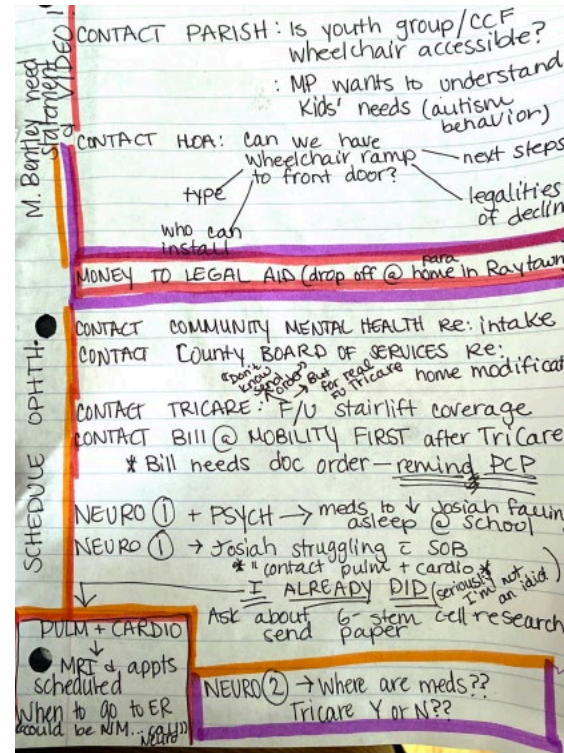 M. Bentley need
Statement
VIDEO!
CONTACT PARISH: Is youth group/CCF
wheelchair accessible?
: MP wants to understand
Kids' needs (autism
behavior)
CONTACT HOA: Can we have
wheelchair ramp
to front door?
next steps
type
who can
install
legalities
of declin
MONEY TO LEGAL AID (drop off @ para home in Raytown
SCHEDULE OPHTH.
CONTACT COMMUNITY MENTAL HEALTH Re: intake
CONTACT County BOARD OF SERVICES Re:
home modificat
"Don't
know
send
order"
→ But
for real
FU Tricare
CONTACT TRICARE: F/U stairlift coverage
CONTACT Bill @ MOBILITY FIRST after TriCare
* Bill needs doc order – remind PCP
NEURO ① + PSYCH → meds to ↓ Josiah fallin
asleep @ school
NEURO ① → Josiah struggling c̄ SOB
* "contact pulm + cardio *
I ALREADY DID (seriously
I'm not
an idiot)
Ask about 6- stem cell research
send paper
PULM + CARDIO
↓
MRI & appts
scheduled
When to go to ER
"could be N/M... call"
Neuro
NEURO ② → Where are meds??
Tricare Y or N??